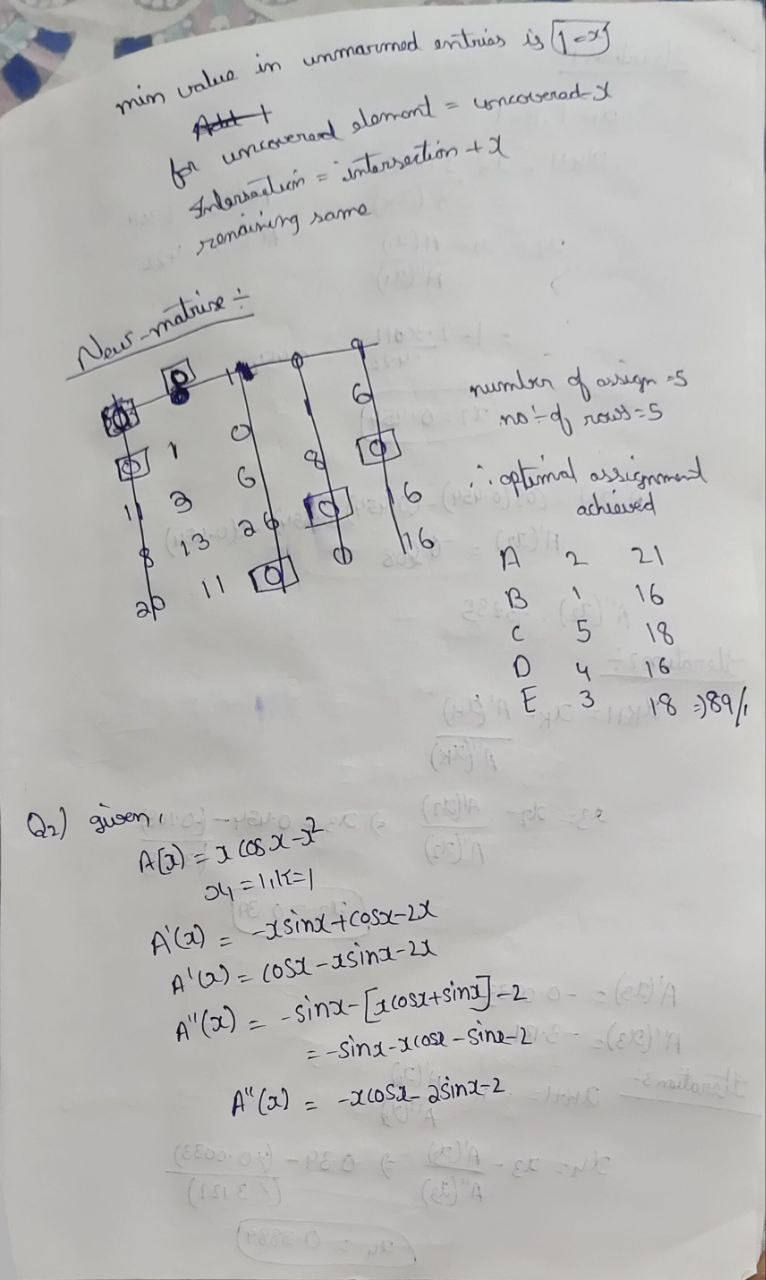 min value in unmarmed entries is 1=x
Add +
for uncovered element = uncovered-x
Intersection = intersection + x
remaining same
New-matrixe ÷
0 0 1 0 9
0 1 0 1 6
11 3 6 8 0
8 13 26 0 16
20 11 0 0 16
number of assign =5
no÷of rows=5
∴ optimal assignment
achieved
A 2 21
B 1 16
C 5 18
D 4 16
E 3 18 =)89/.
Q2) given,
A(x) = x cosx-x²
x1 = 1, K=1
A'(x) = -xsinx+cosx-2x
A'(x) = cosx-xsinx-2x
A"(x) = -sinx-[xcosx+sinx]-2
= -sinx-xcosx-sinx-2
A"(x) = -xcosx-2sinx-2